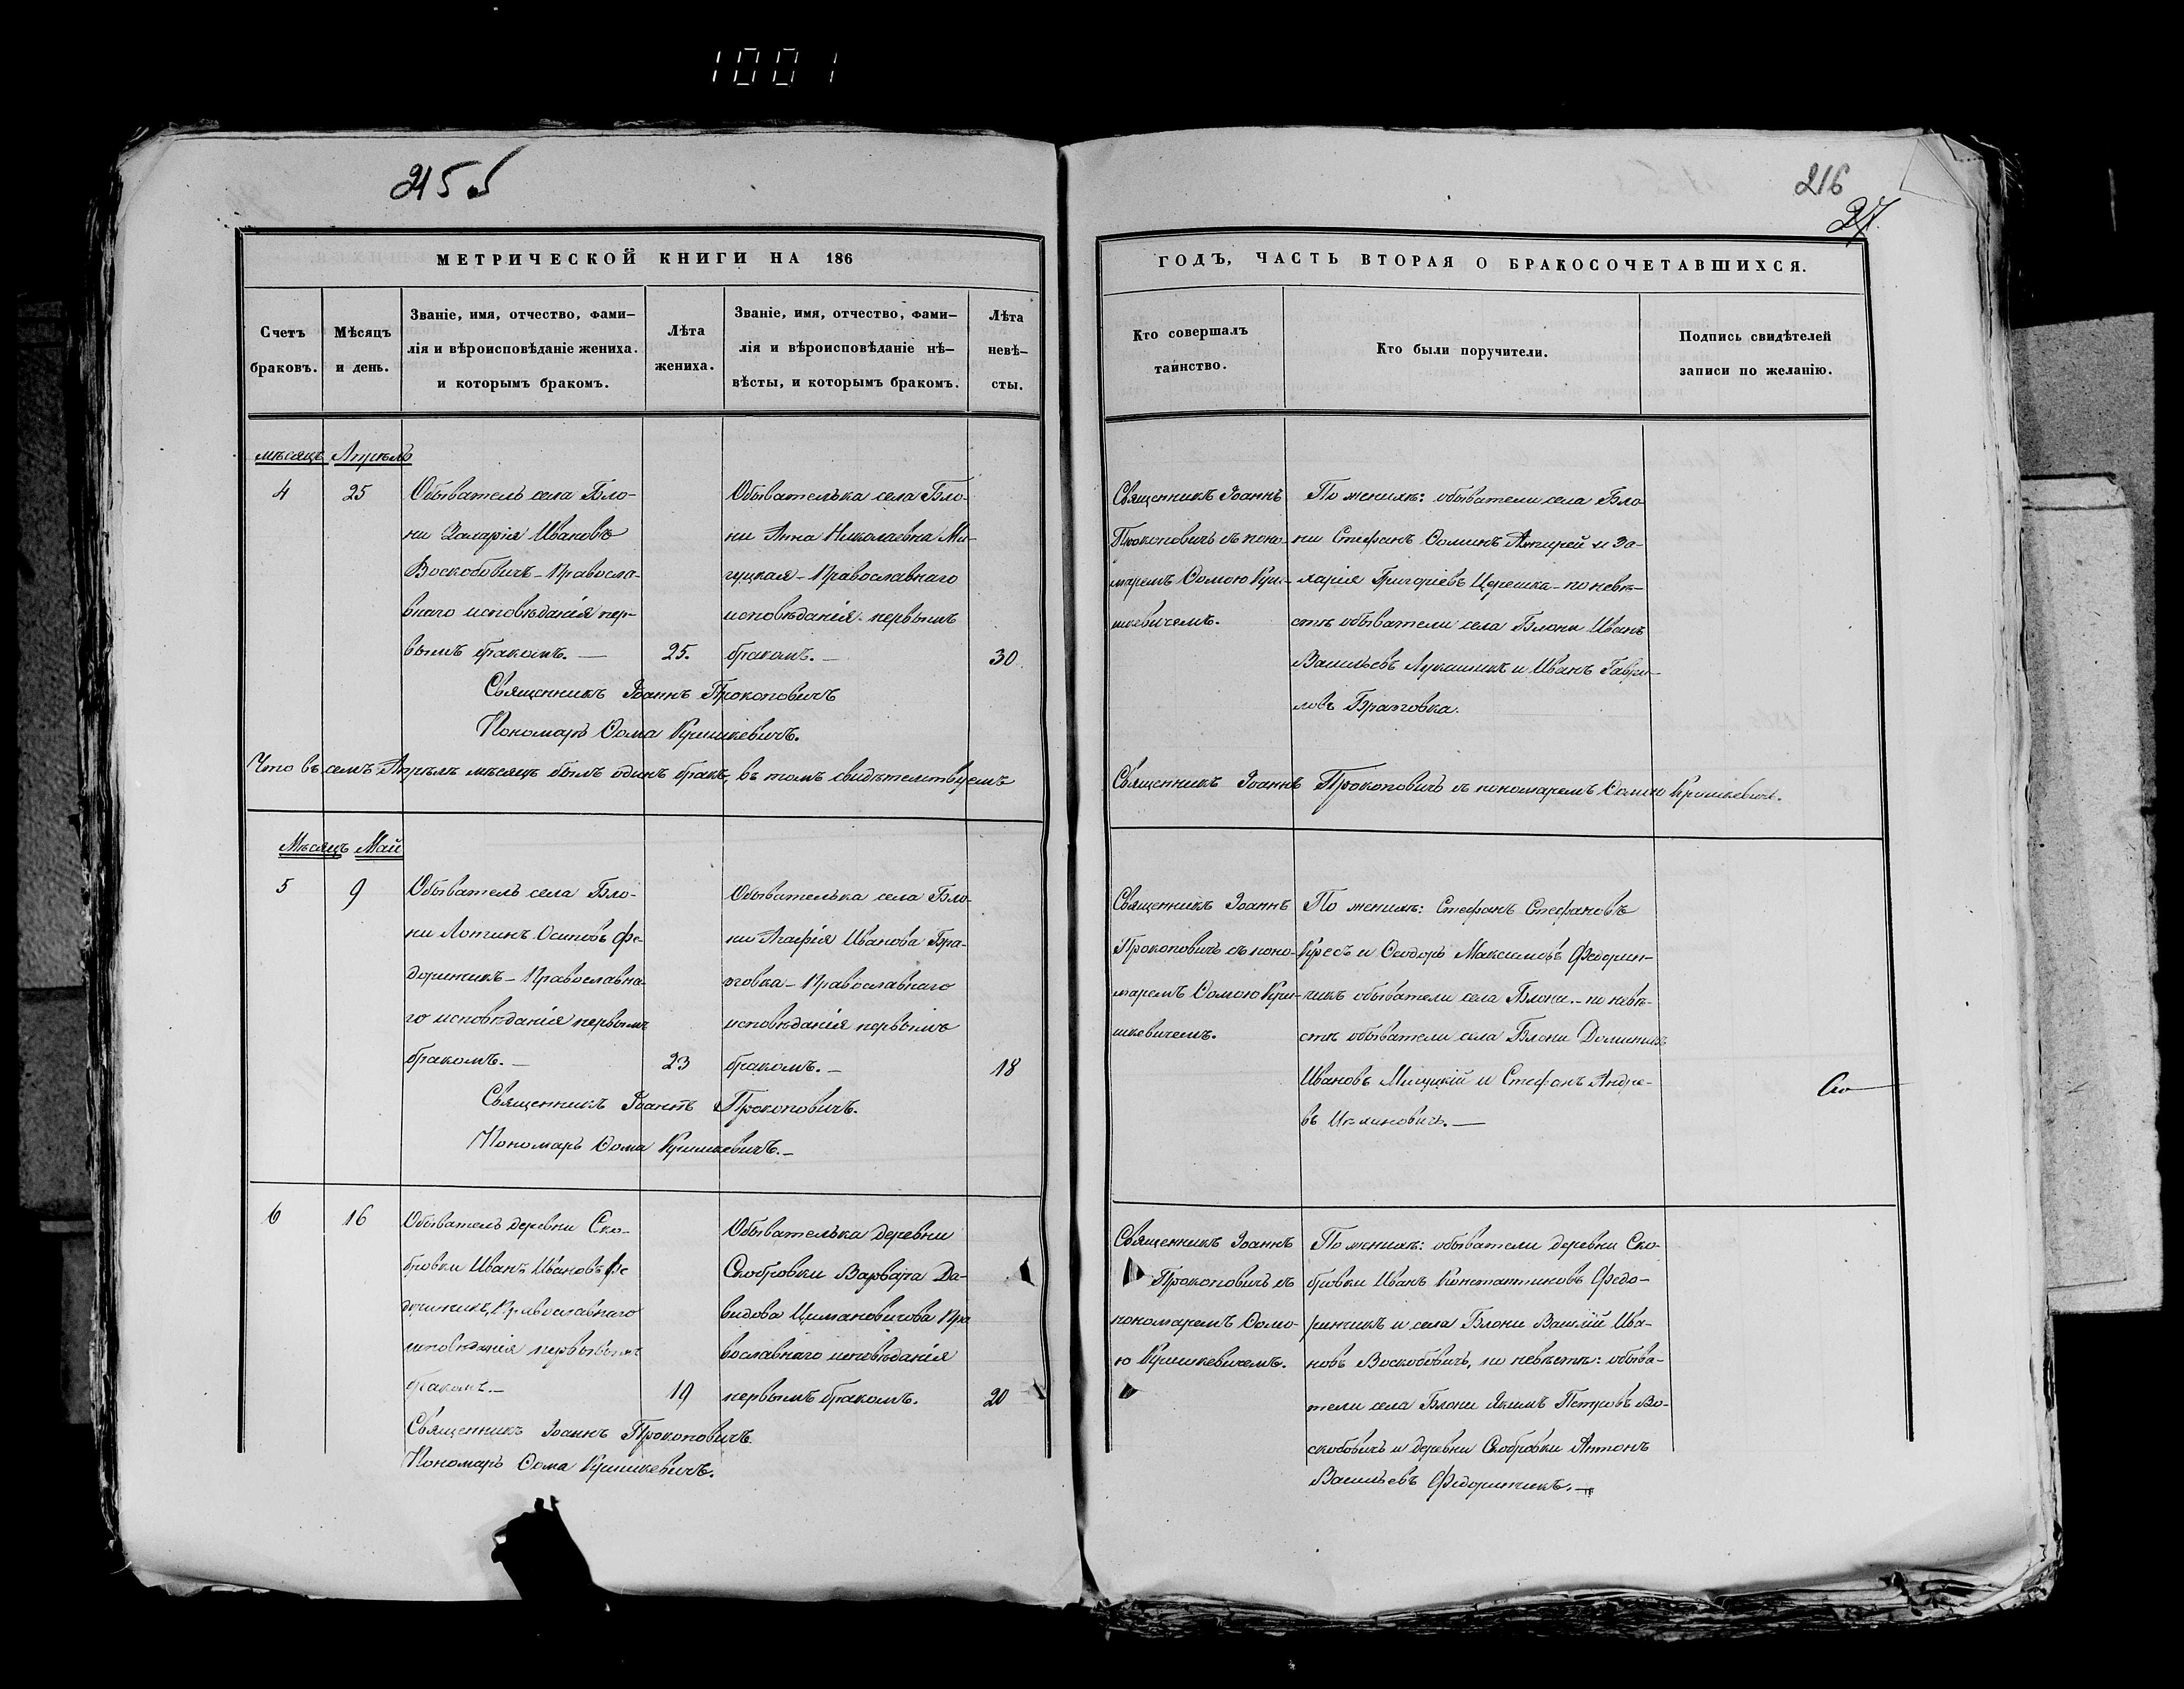 1001
215 б
216
27.
МЕТРИЧЕСКОЙ КНИГИ НА 186
Счетъ
браковъ.
Мѣсяцъ
и день.
Званіе, имя, отчество, фами-
лія и вѣроисповѣданіе жениха.
и которымъ бракомъ.
Лѣта
жениха.
Званіе, имя, отчество, фами-
лія и вѣроисповѣданіе нѣ-
вѣсты, и которымъ бракомъ.
Лѣта
невѣ-
сты.
мѣсяцъ Апрѣль
4
25
Обыватель села Бло-
ни Захарія Ивановъ
Воскобовичъ - Правосла-
внаго исповѣданія пер-
вымъ бракомъ. —
25.
Обывателька села Бло-
ни Анна Николаевна Ми-
гуцкая - Православнаго
исповѣданія первымъ
бракомъ. —
30.
Священникъ Іоаннъ Прокоповичъ
Пономарь Ѳома Кришкевичъ.
Что въ семъ Апрѣлѣ мѣсяцѣ былъ одинъ бракъ, въ томъ свидѣтельствуемъ
Мѣсяцъ Май
5
9
Обыватель села Бло-
ни Осиповъ Фе-
доринчикъ - Православна
го исповѣданія первымъ
бракомъ. —
23
Обывателька села Бло-
ни Агафія Иванова Бра-
говка - Православнаго
исповѣданія первымъ
бракомъ. —
18
Священникъ Іоаннъ Прокоповичъ.
Пономарь Ѳома Кришкевичъ. —
6
16
Обыватель деревни Ско-
бровки Иванъ Ивановъ Фе
доринчикъ, Православнаго
исповѣданія первымъ
бракомъ. —
19
Обывателька деревни
Скобровки Варвара Да-
видова Цимановичова Пра
вославнаго исповѣданія
первымъ бракомъ.
20
Священникъ Іоаннъ Прокоповичъ
Пономарь Ѳома Кришкевичъ.
ГОДЪ, ЧАСТЬ ВТОРАЯ О БРАКОСОЧЕТАВШИХСЯ.
Кто совершалъ
таинство.
Кто были поручители.
Подпись свидѣтелей
записи по желанію.
Священникъ Іоаннъ
Прокоповичъ съ поно-
маремъ Ѳомою Кри-
шкевичемъ.
По женихѣ: обыватели села Бло
ни Стефанъ Ѳоминъ и За-
харія Григоріевъ Церешка - по невѣ-
стѣ обыватели села Блони Иванъ
Васильевъ Лукашикъ и Иванъ Гаври-
ловъ Браговка.
Священникъ Іоаннъ Прокоповичъ съ пономаремъ Ѳомою Кришкевичъ.
Священникъ Іоаннъ
Прокоповичъ съ поно-
маремъ Ѳомою Кри-
шкевичемъ.
По женихѣ: Стефанъ Стефановъ
Кресъ и Ѳеодоръ Максимовъ Федорин-
чикъ обыватели села Блони. - по невѣ-
стѣ обыватели села Блони Доминикъ
Ивановъ Мигуцкій и Стефанъ Андре-
въ —
Священникъ Іоаннъ
Прокоповичъ съ
пономаремъ Ѳомо-
ю Кришкевичемъ.
По женихѣ: обыватели деревни Ско-
бровки Иванъ Константиновъ Федо-
ринчикъ и села Блони Василій Ива-
новъ Воскобовичъ, по невѣстѣ: обыва-
тели села Блони Якимъ Петровъ Во-
скобовичъ и деревни Скобровки Антонъ
Васильевъ Федоринчикъ. —